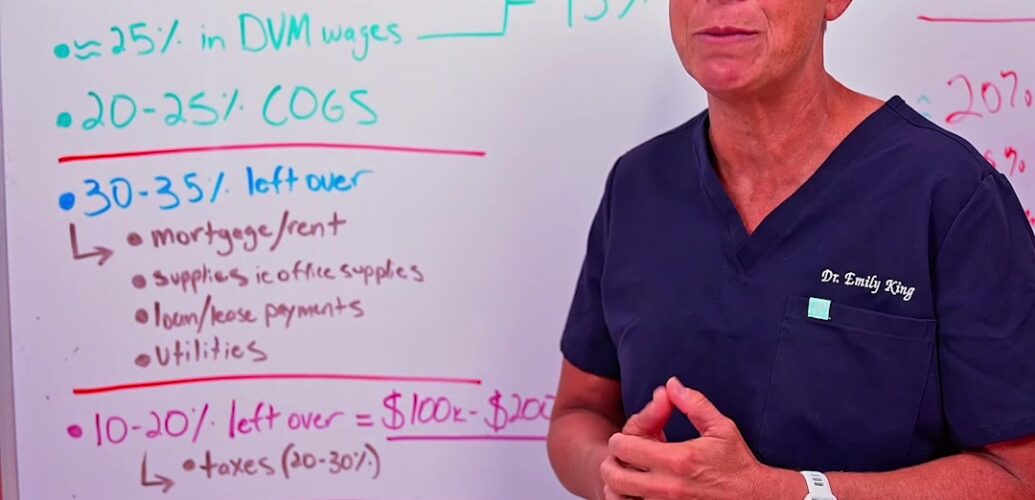 • ≈ 25% in DVM wages
15%
• 20-25% COGS
• 30-35% left over
• mortgage/rent
• supplies ie office supplies
• loan/lease payments
• utilities
• 10-20% left over = $100k - $200
• taxes (20-30%)
20%
%
Dr. Emily King